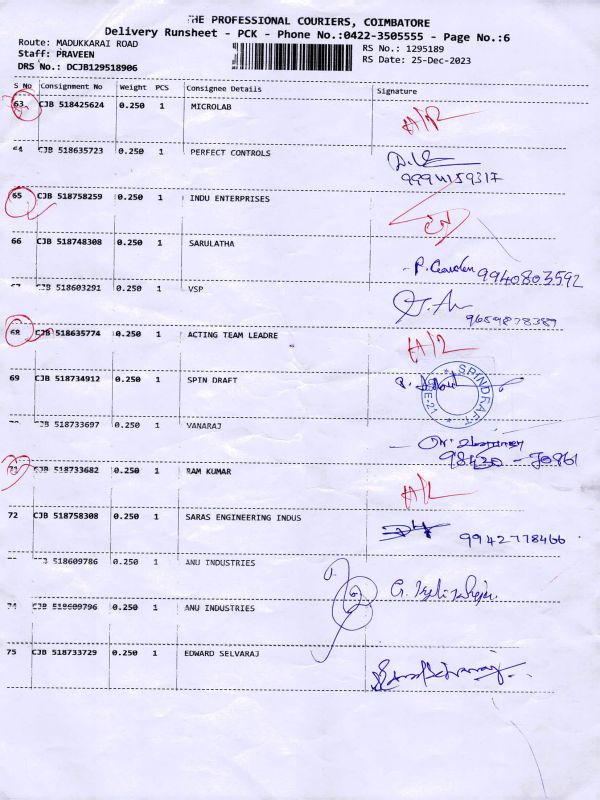 THE PROFESSIONAL COURIERS, COIMBATORE
Delivery Runsheet - PCK - Phone No.:0422-3505555 - Page No.:6
Route: MADUKKARAI ROAD
RS No.: 1295189
Staff: PRAVEEN
RS Date: 25-Dec-2023
DRS No.: DCJB129518906
S No Consignment No Weight PCS Consignee Details Signature
63 CJB 518425624 0.250 1 MICROLAB
64 CJB 518635723 0.250 1 PERFECT CONTROLS
9994159317
65 CJB 518758259 0.250 1 INDU ENTERPRISES
66 CJB 518748308 0.250 1 SARULATHA
9940803592
67 CJB 518603291 0.250 1 VSP
9659878387
68 CJB 518635774 0.250 1 ACTING TEAM LEADRE
69 CJB 518734912 0.250 1 SPIN DRAFT
SPINDRAFT
CJB 518733697 0.250 1 VANARAJ
98430 - 70861
71 CJB 518733682 0.250 1 RAM KUMAR
72 CJB 518758308 0.250 1 SARAS ENGINEERING INDUS
9942778466
518609786 0.250 1 ANU INDUSTRIES
74 CJB 518609796 0.250 1 ANU INDUSTRIES
75 CJB 518733729 0.250 1 EDWARD SELVARAJ